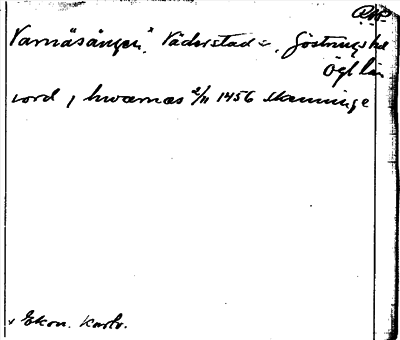 RAP
Varnäsängen", Väderstad sn, Göstrings hd
Ögl län
word j hwarnæs 2/11 1456 Skenninge
v Ekon. Kartv.